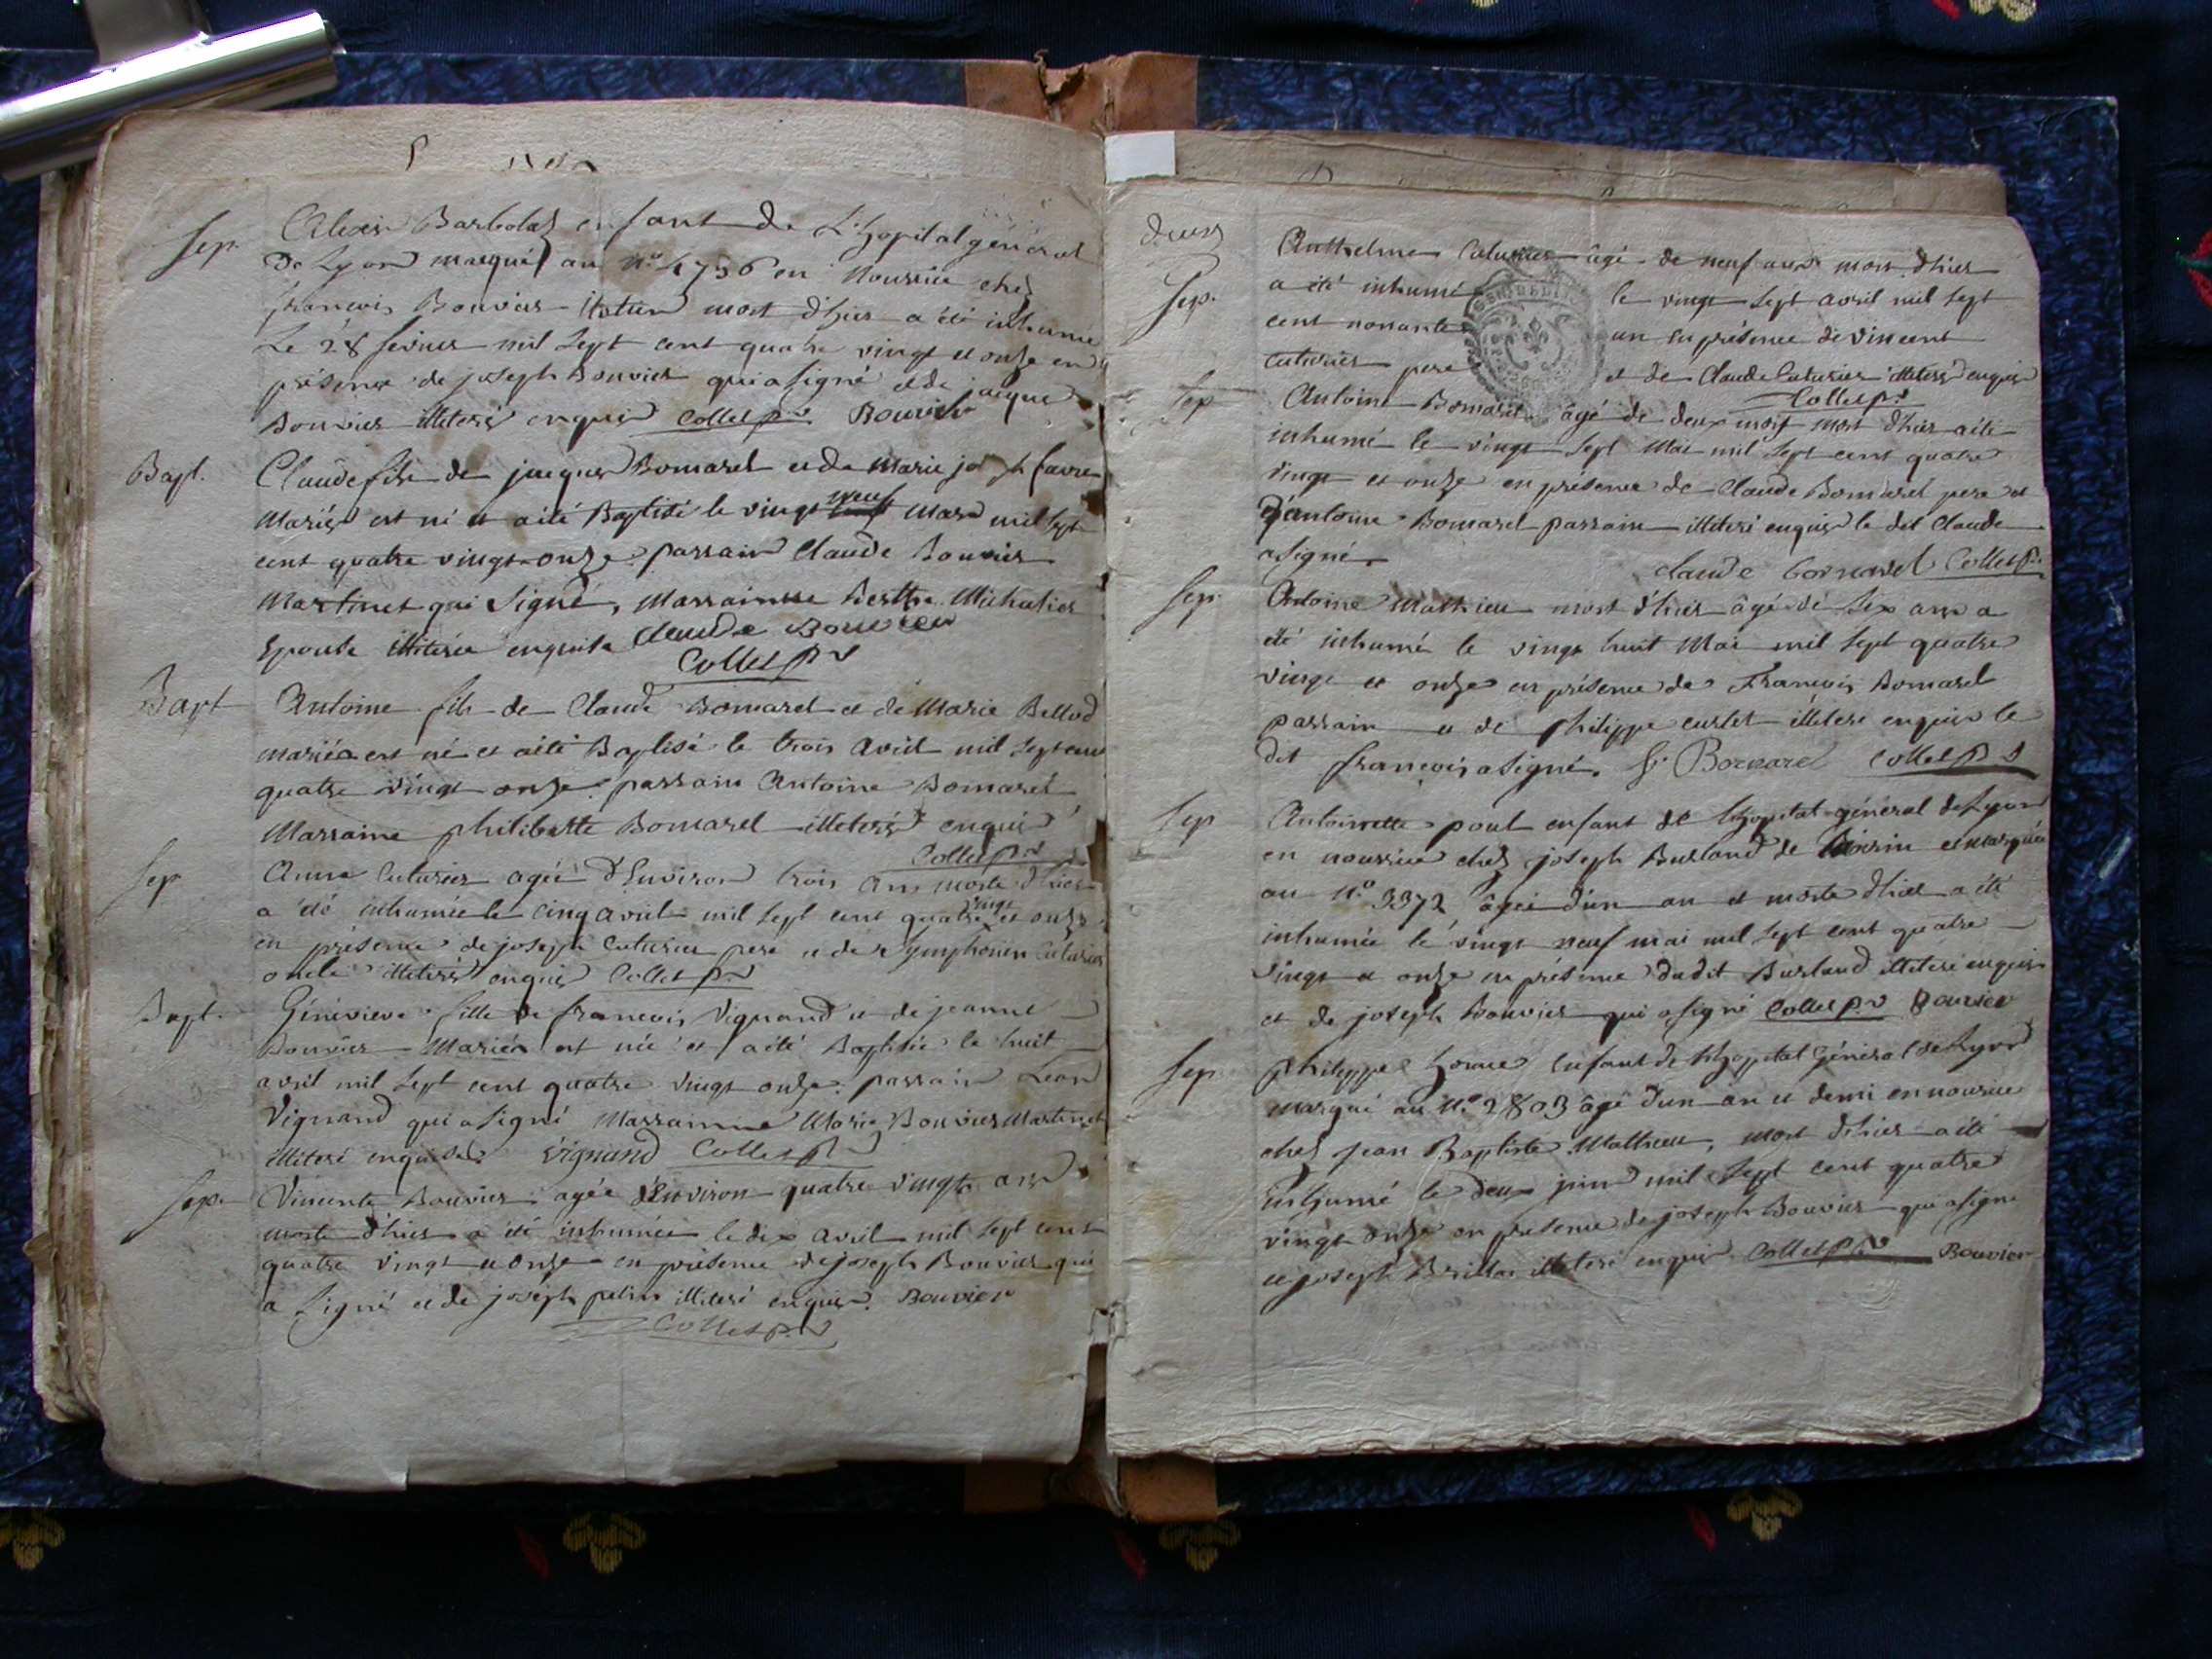 Sep. Alexis Barbolat enfant de L'hopital général
de Lyon marqué au n.° 4756 en Nourrice chez
francois Bouvier Hotten mort d'hier a été inhumé
Le 28 fevrier mil Sept cent quatre vingt et onze en
présence de joseph Bouvier qui a signé et de jacque
Bouvier illiteré enquis Collet p.re Bouvier
Bapt. Claude fils de jacques Bomarel et de Marie favre
Mariés est né et a été Baptisé le vingt neuf Mars mil Sept
cent quatre vingt onze parrain Claude Bouvier
Martinet qui signé, Marrainne Berthe Michalier
Epouse illiterée enquise Claude Bouvier
Collet p.r
Bapt Antoine fils de Claude Bomarel et de Marie Bellod
mariés est né et a été Baptisé le trois Avril mil Sept cent
quatre vingt onze parrain Antoine Bomarel
Marraine philiberte Bomarel illiterés enquis
Collet p.r
Sep Anne Cuturier agée d'Environ trois Ans morte d'hier
a été inhumée le cinq avril mil Sept cent quatre vingt et onze
en présence de joseph Cuturier pere et de Symphorien Cuturier
oncle illiterés enquis Collet p.r
Bapt. Génevieve fille de francois Vignand et de jeanne
Bouvier Mariés est née et a été Baptisée le huit
avril mil Sept cent quatre vingt onze. parrain Lean
Vignand qui a signé Marrainne Marie Bouvier Martinet
illiteré enquise. Vignand Collet p.r
Sep. Vincente Bouvier agée d'Environ quatre vingts ans
morte d'hier a été inhumée le dix avril mil Sept cent
quatre vingt et onze en présence de joseph Bouvier qui
a signé et de joseph pelin illiteré enquis. Bouvier
Collet p.r
deux
Sep. Anthelme Cuturier âgé de neuf ans mort d'hier
a été inhumé le vingt Sept avril mil Sept
cent nonante un en présence de Vincent
Cuturier pere et de Claude Cuturier illiterés enquis
Collet p.r
Sep Antoine Bomarel âgé de deux mois mort d'hier a été
inhumé le vingt Sept Mai mil Sept cent quatre
vingt et onze en présence de Claude Bomarel pere et
d'antoine Bomarel parrain illiteré enquis le dit Claude
a signé.
Claude bornarel Collet p.r
Sep. Antoine Mathieu mort d'hier âgé de Six ans a
été inhumé le vingt huit Mai mil Sept quatre
vingt et onze en présence de François Bomarel
parrain et de philippe curlet illiteré enquis le
dit françois a signé. f. Bornarel Collet p.r
Sep Antoinette pout enfant de l'hopital général de Lyon
en nourrice chez joseph Burland de et marquée
au N.° 3372 âgée d'un an et morte d'hier a été
inhumée le vingt neuf mai mil Sept cent quatre
vingt et onze en présence dudit Burland illiteré enquis
et de joseph Bouvier qui a signé Collet p.r Bouvier
Sep philippe enfant de l'hopital Général de Lyon
marqué au N.° 2803 âgé d'un an et demi en nourrice
chez jean Baptiste Mathieu, mort d'hier a été
inhumé le deux juin mil Sept cent quatre
vingt onze en présence de joseph Bouvier qui a signé
et joseph illiteré enquis Collet p.r Bouvier